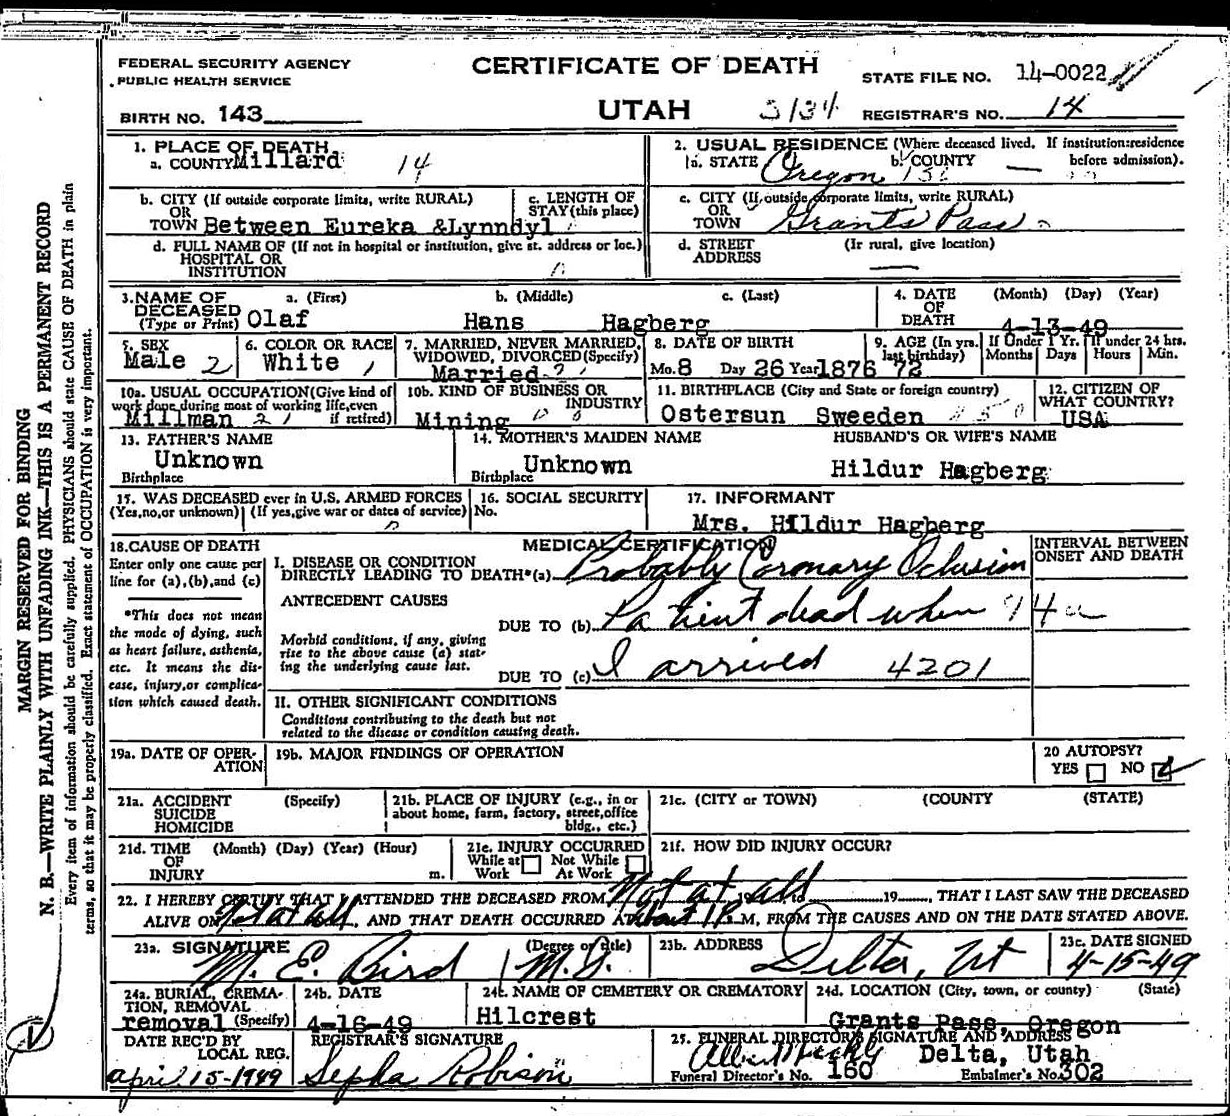 FEDERAL SECURITY AGENCY
PUBLIC HEALTH SERVICE
CERTIFICATE OF DEATH
STATE FILE NO. 14-0022
BIRTH NO. 143
UTAH 3134
REGISTRAR'S NO. 14
1. PLACE OF DEATH
a. COUNTY Millard 14
2. USUAL RESIDENCE (Where deceased lived. If institution:residence before admission).
a. STATE Oregon b. COUNTY —
b. CITY (If outside corporate limits, write RURAL)
OR
TOWN Between Eureka &Lynndyl
c. LENGTH OF
STAY (this place)
c. CITY (If outside corporate limits, write RURAL)
OR
TOWN Grants Pass
d. FULL NAME OF (If not in hospital or institution, give st. address or loc.)
HOSPITAL OR
INSTITUTION
d. STREET (If rural, give location)
ADDRESS —
3. NAME OF DECEASED (Type or Print)
a. (First) b. (Middle) c. (Last)
Olaf Hans Hagberg
4. DATE OF DEATH (Month) (Day) (Year)
4-13-49
5. SEX
Male 2
6. COLOR OR RACE
White 1
7. MARRIED, NEVER MARRIED,
WIDOWED, DIVORCED (Specify)
Married
8. DATE OF BIRTH
Mo. 8 Day 26 Year 1876
9. AGE (In yrs. last birthday)
72
If Under 1 Yr. Months Days
If under 24 hrs. Hours Min.
10a. USUAL OCCUPATION (Give kind of
work done during most of working life, even
if retired)
Millman 21
10b. KIND OF BUSINESS OR
INDUSTRY
Mining
11. BIRTHPLACE (City and State or foreign country)
Ostersun Sweeden
12. CITIZEN OF
WHAT COUNTRY?
USA
13. FATHER'S NAME
Unknown
Birthplace
14. MOTHER'S MAIDEN NAME
Unknown
Birthplace
HUSBAND'S OR WIFE'S NAME
Hildur Hagberg
15. WAS DECEASED ever in U.S. ARMED FORCES
(Yes, no, or unknown) (If yes, give war or dates of service)
16. SOCIAL SECURITY
No.
17. INFORMANT
Mrs. Hildur Hagberg
18. CAUSE OF DEATH
Enter only one cause per
line for (a), (b), and (c)
*This does not mean
the mode of dying, such
as heart failure, asthenia,
etc. It means the dis-
ease, injury, or complica-
tion which caused death.
MEDICAL CERTIFICATION
INTERVAL BETWEEN
ONSET AND DEATH
I. DISEASE OR CONDITION
DIRECTLY LEADING TO DEATH*(a) Probably Coronary Oclusion
ANTECEDENT CAUSES
DUE TO (b) Patient dead when 94a
Morbid conditions, if any, giving
rise to the above cause (a) stat-
ing the underlying cause last.
DUE TO (c) I arrived 4201
II. OTHER SIGNIFICANT CONDITIONS
Conditions contributing to the death but not
related to the disease or condition causing death.
19a. DATE OF OPER-
ATION
19b. MAJOR FINDINGS OF OPERATION
20 AUTOPSY?
YES NO
21a. ACCIDENT (Specify)
SUICIDE
HOMICIDE
21b. PLACE OF INJURY (e.g., in or
about home, farm, factory, street, office
bldg., etc.)
21c. (CITY or TOWN) (COUNTY) (STATE)
21d. TIME (Month) (Day) (Year) (Hour)
OF
INJURY m.
21e. INJURY OCCURRED
While at Work Not While At Work
21f. HOW DID INJURY OCCUR?
22. I HEREBY CERTIFY THAT I ATTENDED THE DECEASED FROM Not at all 19, THAT I LAST SAW THE DECEASED
ALIVE ON Not at all, AND THAT DEATH OCCURRED AT about 1 P. M, FROM THE CAUSES AND ON THE DATE STATED ABOVE.
23a. SIGNATURE (Degree or title)
M. E. Bird M.D.
23b. ADDRESS
Delta, Ut
23c. DATE SIGNED
4-15-49
24a. BURIAL, CREMA-
TION, REMOVAL
removal (Specify)
24b. DATE
4-16-49
24c. NAME OF CEMETERY OR CREMATORY
Hilcrest
24d. LOCATION (City, town, or county) (State)
Grants Pass, Oregon
DATE REC'D BY
LOCAL REG.
april 15-1949
REGISTRAR'S SIGNATURE
Sepha Robison
25. FUNERAL DIRECTOR'S SIGNATURE AND ADDRESS
Delta, Utah
Funeral Director's No. 160 Embalmer's No. 302
MARGIN RESERVED FOR BINDING
N. B.—WRITE PLAINLY WITH UNFADING INK—THIS IS A PERMANENT RECORD
Every item of information should be carefully supplied. PHYSICIANS should state CAUSE OF DEATH in plain
terms, so that it may be properly classified. Exact statement of OCCUPATION is very important.